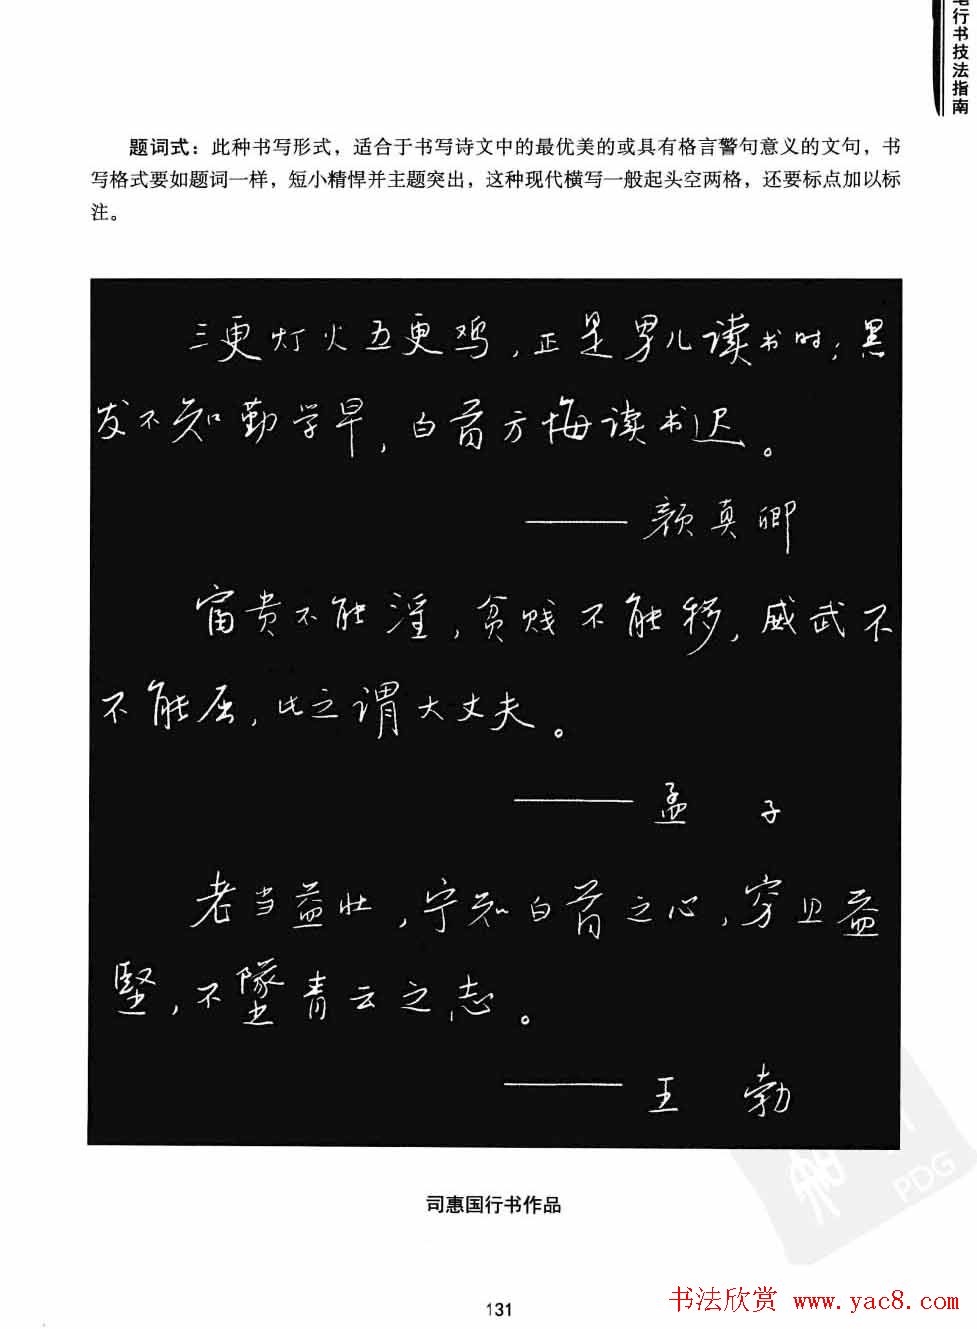 笔行书技法指南
题词式：此种书写形式，适合于书写诗文中的最优美的或具有格言警句意义的文句，书
写格式要如题词一样，短小精悍并主题突出，这种现代横写一般起头空两格，还要标点加以标
注。
三更灯火五更鸡，正是男儿读书时；黑
发不知勤学早，白首方悔读书迟。
——颜真卿
富贵不能淫，贫贱不能移，威武不
不能屈，此之谓大丈夫。
——孟 子
老当益壮，宁知白首之心，穷且益
坚，不墜青云之志。
——王 勃
司惠国行书作品
PDG
131
书法欣赏 www.yac8.com